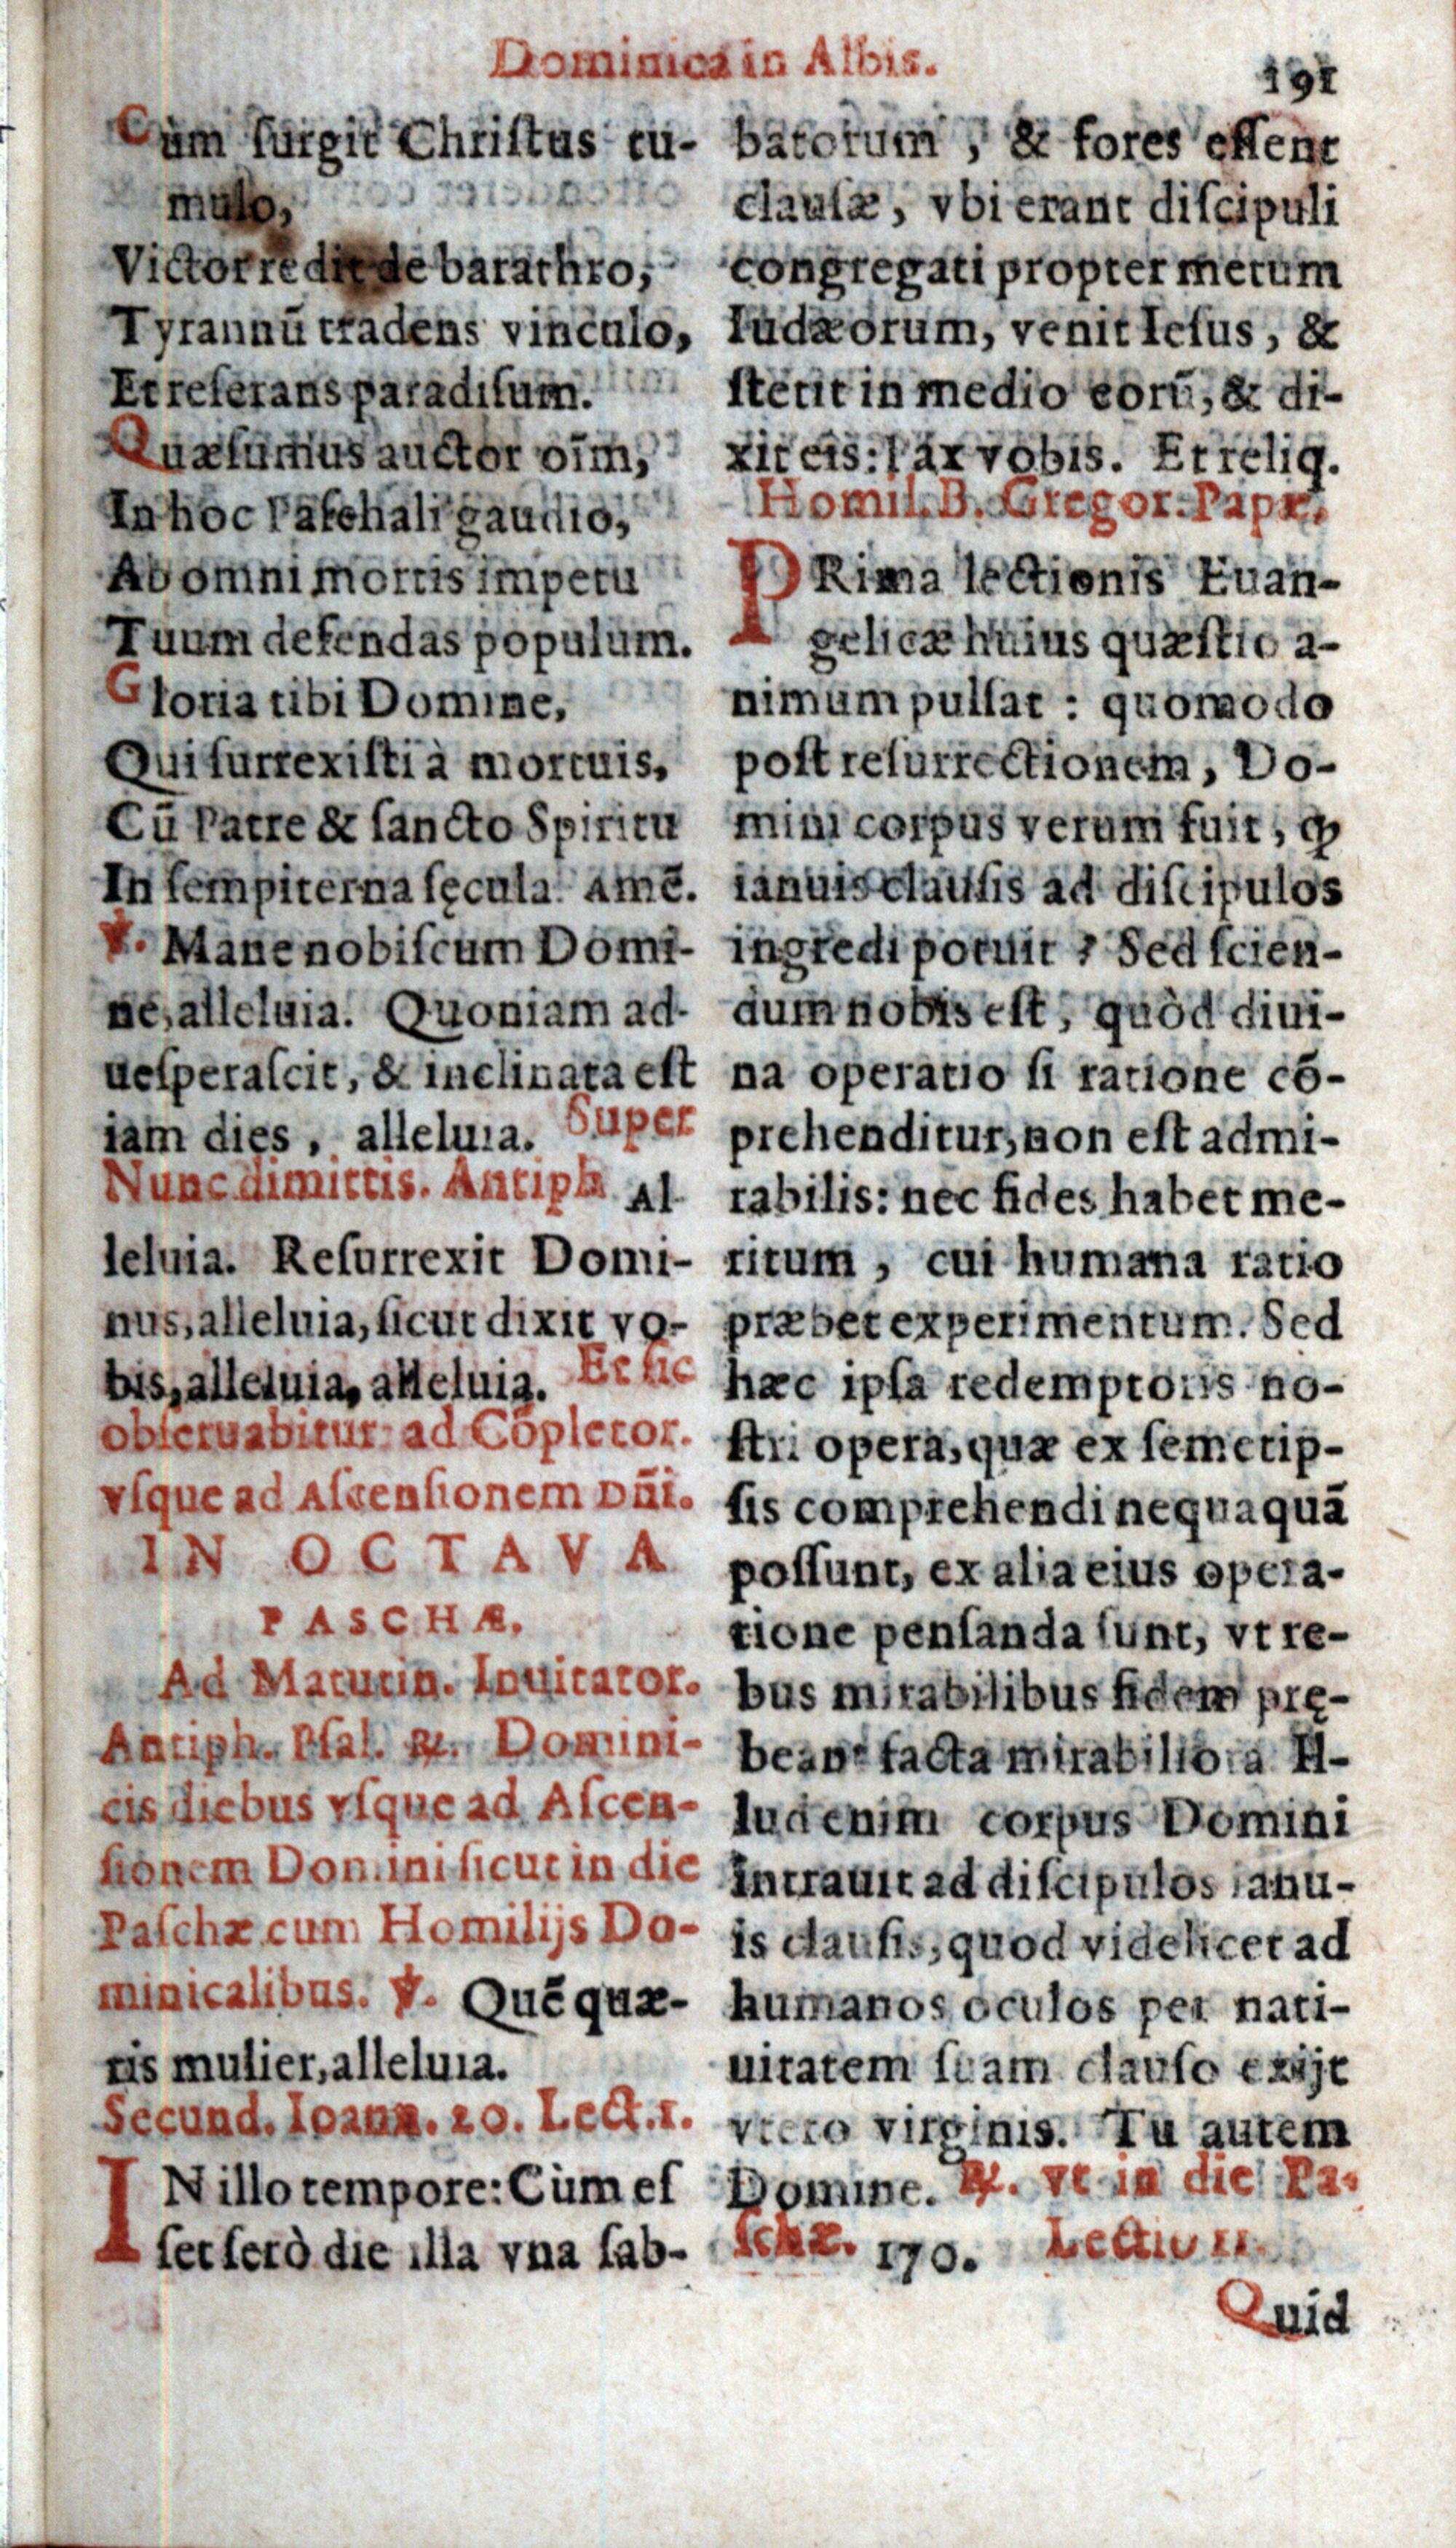 Dominica in Albis.
191
Cùm ſurgit Chriſtus tu-
mulo,
Victor redit de barathro,
Tyrannū tradens vinculo,
Et reſerans paradiſum.
Quæſumus auctor oīm,
In hoc Paſchali gaudio,
Ab omni mortis impetu
Tuum defendas populum.
Gloria tibi Domine,
Qui ſurrexiſti à mortuis,
Cū Patre & ſancto Spiritu
In ſempiterna ſęcula. Amē.
℣. Mane nobiſcum Domi-
ne, alleluia. Quoniam ad-
ueſperaſcit, & inclinata eſt
iam dies, alleluia. Super
Nunc dimittis. Antiph Al
leluia. Reſurrexit Domi-
nus, alleluia, ſicut dixit vo-
bis, alleluia, alleluia. Et ſic
obſeruabitur ad Cōpletor.
vſque ad Aſcenſionem Dn̄i.
IN OCTAVA
PASCHÆ.
Ad Matutin. Inuitator.
Antiph. Pſal. ℟. Domini-
cis diebus vſque ad Aſcen-
ſionem Domini ſicut in die
Paſchæ cum Homilijs Do-
minicalibus. ℣. Quē quæ-
ris mulier, alleluia.
Secund. Ioann. 20. Lect. 1.
IN illo tempore: Cùm eſ
ſet ſerò die illa vna ſab-
batorum, & fores eſſent
clauſæ, vbi erant diſcipuli
congregati propter metum
Iudæorum, venit Ieſus, &
ſtetit in medio eorū, & di-
xit eis: Pax vobis. Et reliq.
Homil. B. Gregor. Papæ.
PRima lectionis Euan-
gelicæ huius quæſtio a-
nimum pulſat : quomodo
poſt reſurrectionem, Do-
mini corpus verum fuit, ꝙ
ianuis clauſis ad diſcipulos
ingredi potuit ? Sed ſcien-
dum nobis eſt, quòd diui-
na operatio ſi ratione cō-
prehenditur, non eſt admi-
rabilis: nec fides habet me-
ritum, cui humana ratio
præbet experimentum. Sed
hæc ipſa redemptoris no-
ſtri opera, quæ ex ſemetip-
ſis comprehendi nequaquā
poſſunt, ex alia eius opera-
tione penſanda ſunt, vt re-
bus mirabilibus fidem prę-
beant facta mirabiliora Il-
lud enim corpus Domini
intrauit ad diſcipulos ianu-
is clauſis, quod videlicet ad
humanos oculos per nati-
uitatem ſuam clauſo exijt
vtero virginis. Tu autem
Domine. ℟. vt in die Pa-
ſchæ. 170. Lectio ii.
Quid